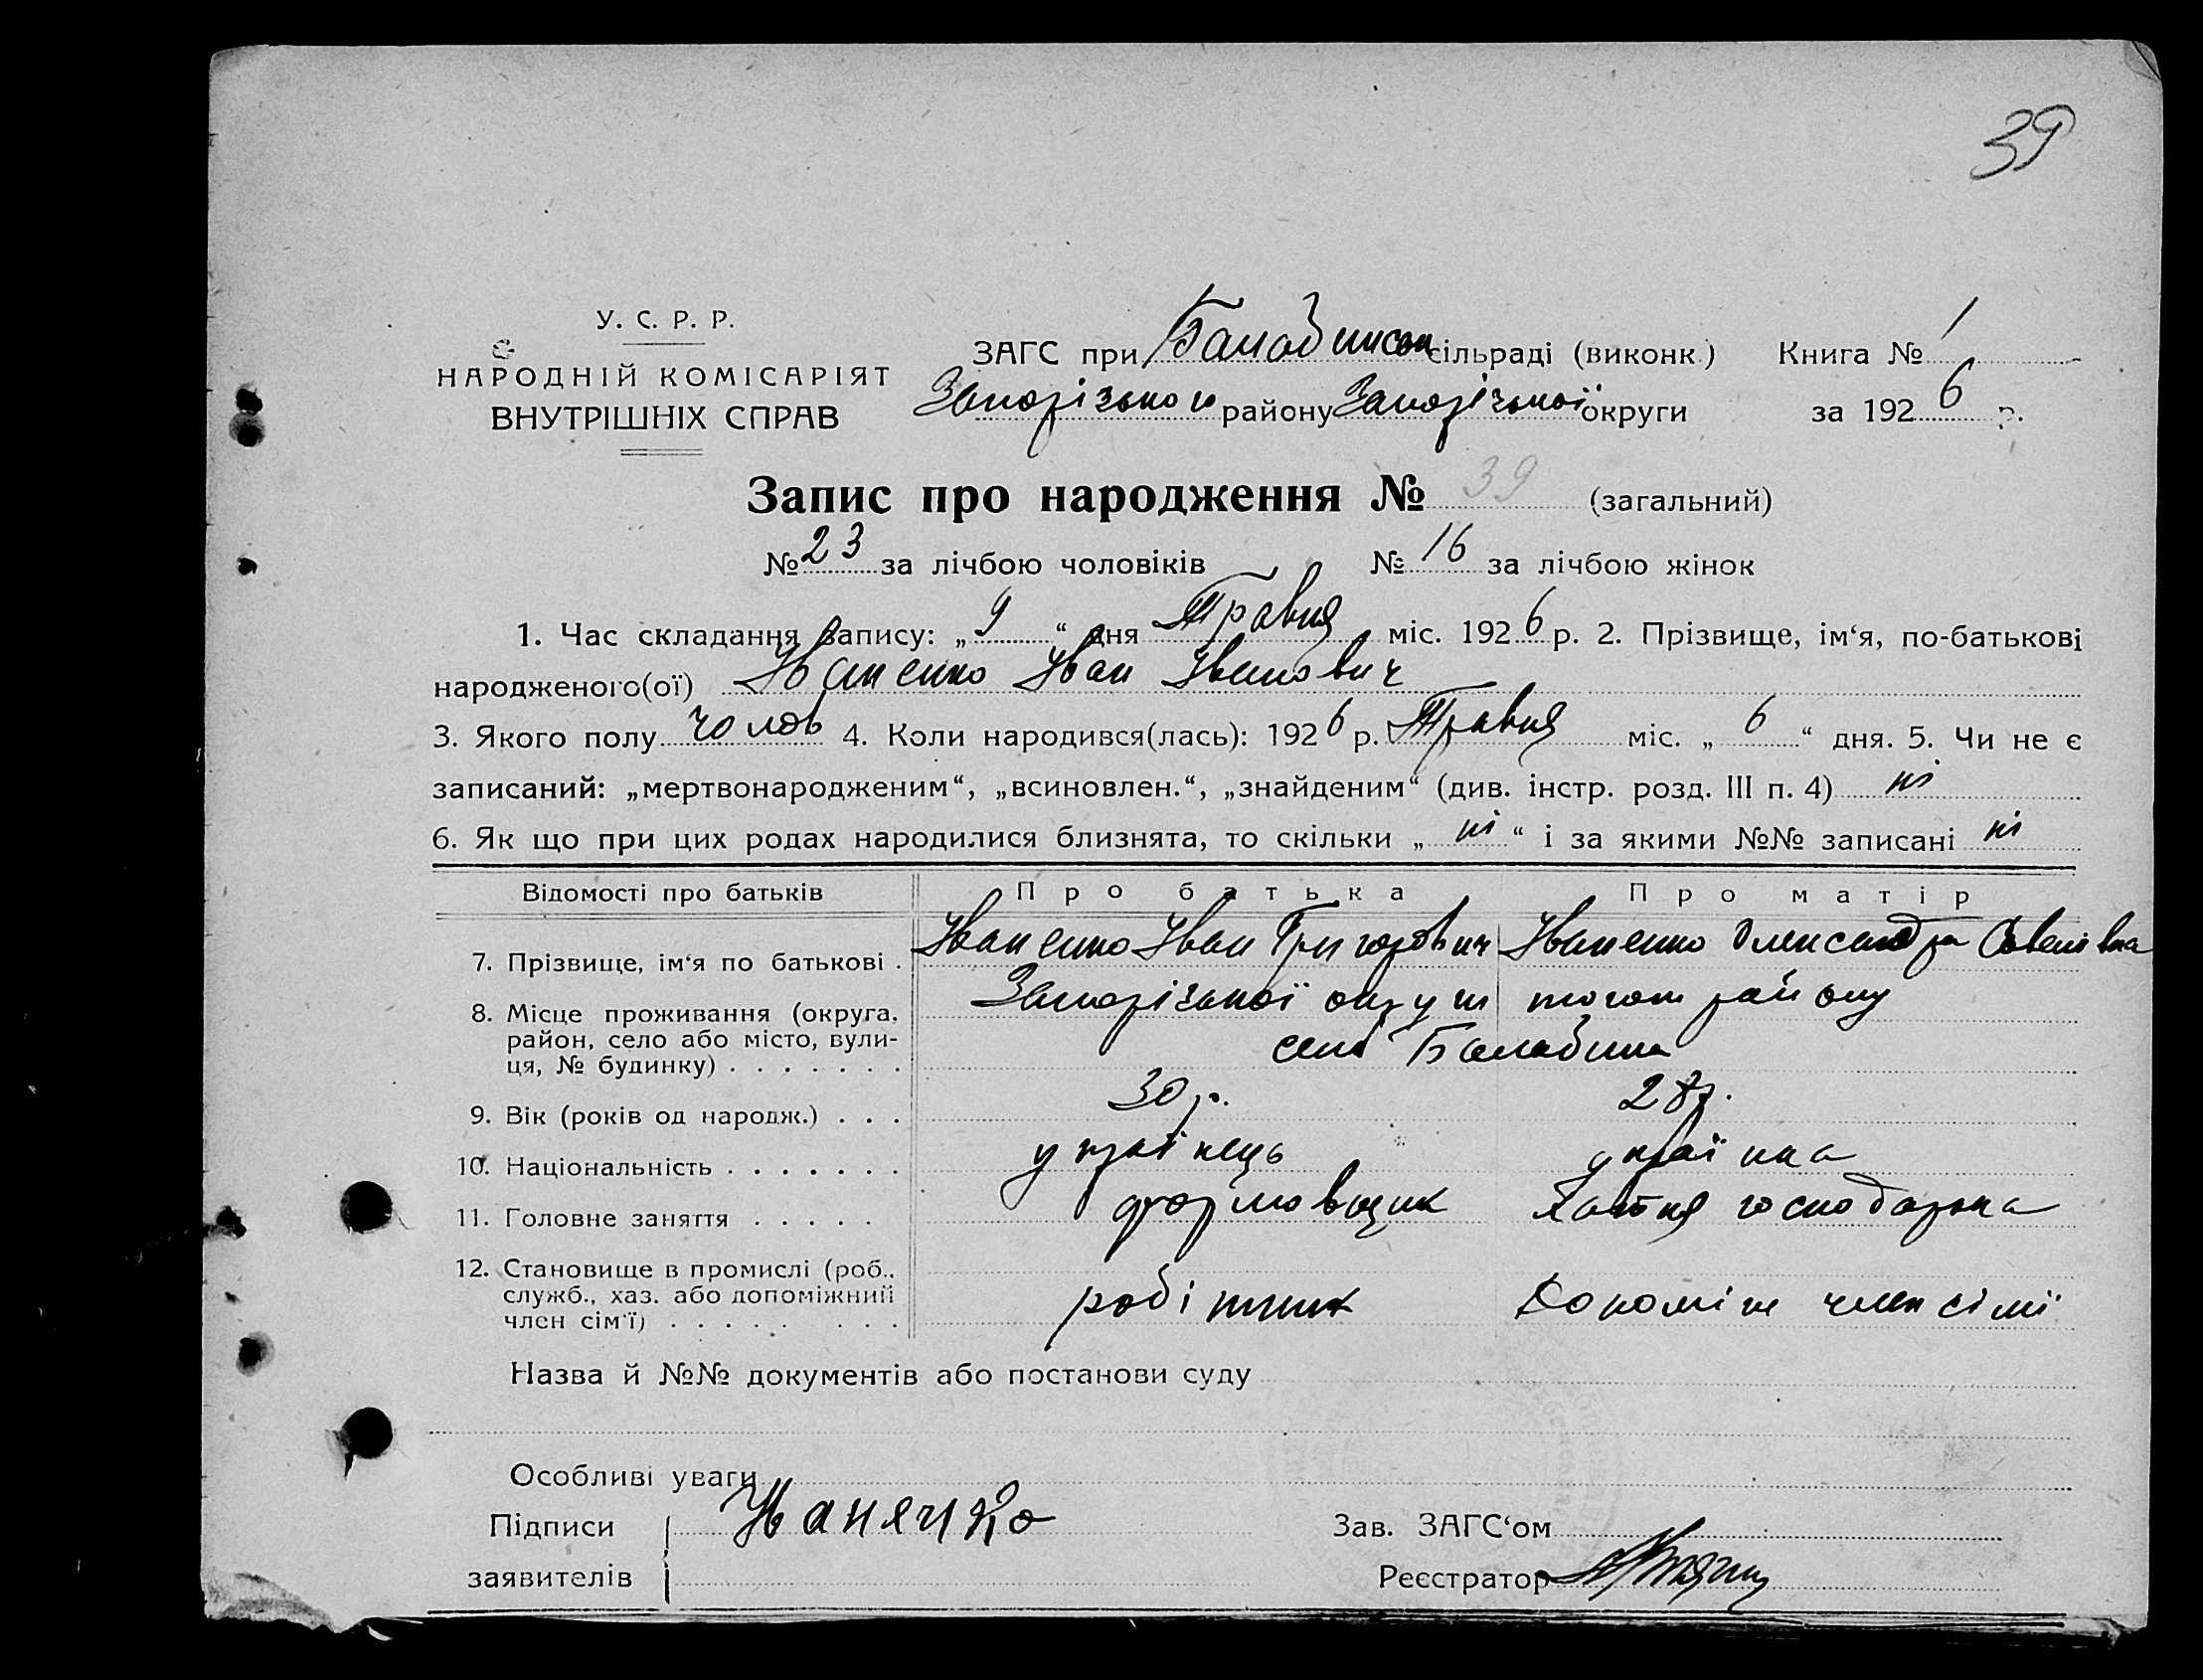 39
У. С. Р. Р.
НАРОДНІЙ КОМІСАРІЯТ
ВНУТРІШНІХ СПРАВ
ЗАГС при Балабинськ сільраді (виконк.) Книга № 1
Запорізького району Запорізької округи за 1926 р.
Запис про народження № 39 (загальний)
№ 23 за лічбою чоловіків № 16 за лічбою жінок
1. Час складання запису: „9“ дня Травня міс. 1926 р. 2. Прізвище, ім‘я, по-батькові
народженого(ої) Іваненко Іван Іванович
3. Якого полу чолов 4. Коли народився(лась): 1926 р. Травня міс. „6“ дня. 5. Чи не є
записаний: „мертвонародженим“, „всиновлен.“, „знайденим“ (див. інстр. розд. III п. 4) ні
6. Як що при цих родах народилися близнята, то скільки „ні“ і за якими №№ записані ні
Відомості про батьків Про батька Про матір
7. Прізвище, ім‘я по батькові . Іваненко Іван Григорович Іваненко Олександра Савелівна
8. Місце проживання (округа, Запорізької округи того ж району
район, село або місто, вули- село Балабина
ця, № будинку) . . . . . . .
9. Вік (років од народж.) . . . 30 р. 28 р.
10. Національність . . . . . . . українець українка
11. Головне заняття . . . . . формовщик хатня господарка
12. Становище в промислі (роб.,
служб., хаз. або допоміжний робітник Допоміж член сімї
член сім‘ї) . . . . . . . .
Назва й №№ документів або постанови суду
Особливі уваги
Підписи Зав. ЗАГС‘ом
заявителів Реєстратор